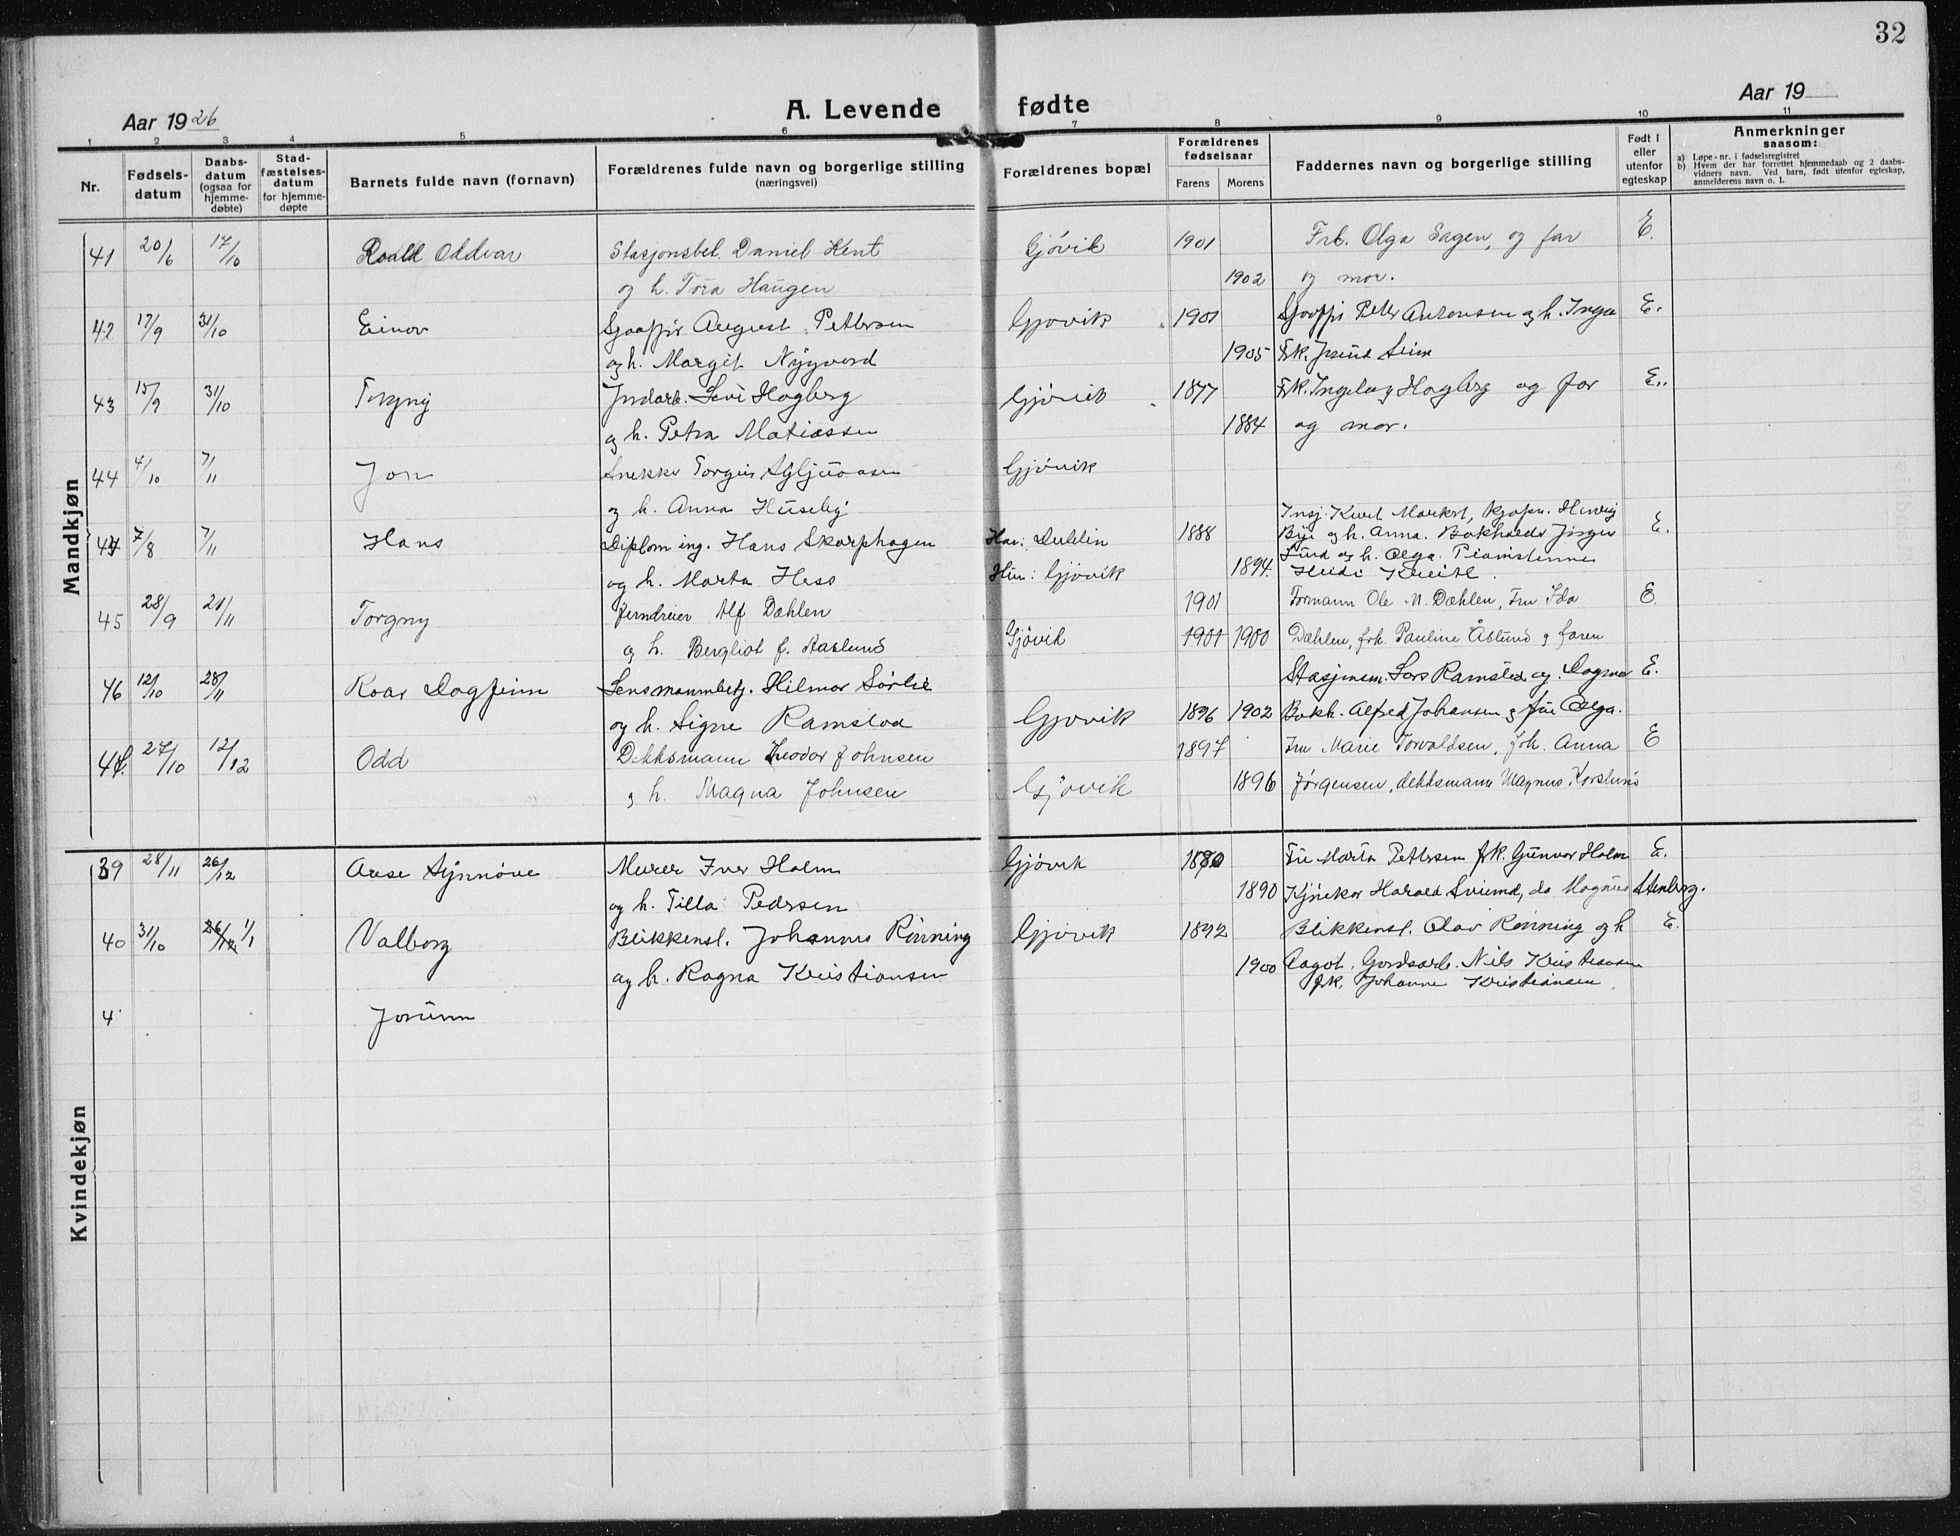 32
Aar 1926
A. Levende fødte
Aar 19
1 2 3 4 5 6 7 8 9 10 11
Nr.
Fødsels-
datum
Daabs-
datum
(ogsaa for
hjemme-
døbte)
Stad-
fæstelses-
datum
for hjemme-
døpte
Barnets fulde navn (fornavn)
Forældrenes fulde navn og borgerlige stilling
(næringsvei)
Forældrenes bopæl
Forældrenes
fødselsaar
Farens Morens
Faddernes navn og borgerlige stilling
Født i
eller
utenfor
egteskap
Anmerkninger
saasom:
a) Løpe-nr. i fødselsregistret
b) Hvem der har forrettet hjemmedaab og 2 daabs-
vidners navn. Ved barn, født utenfor egteskap,
anmelderens navn o. l.
Mandkjøn
41 20/6 17/10 Roald Oddvar Stasjonsbet. Daniel Kent Gjøvik 1901 Frk. Olga Hagen, og far E.
og h. Tora Haugen 1902 og mor.
42 17/9 31/10 Einar August Pettersen Gjøvik 1901 Peter Antonsen og h. Inga E.
og h. Margit Nygaard 1905 Frk.
43 15/9 31/10 Torgny Jordarb. Levi Hagberg Gjøvik 1877 Frk. Ingeborg Hagberg og far E.
og h. Petra Matiassen 1884 og mor.
44 4/10 7/11 Jon Snekker Torgeir Gjøvik
og h. Anna Huseby
Ing. Kurt Markst, kjøpm. Henvig
44 7/8 7/11 Hans Diplom ing. Hans Skarphagen Han: Dublin 1888 Bye og h. Anna. Bokholder E.
og h. Olga. Pianistinne
og h. Marta Hess Hun: Gjøvik 1894. Heidi
45 28/9 21/11 Torgny Jerndreier Alf Dæhlen 1901 Formann Ole M. Dæhlen, Fru Ida E.
og h. Bergliot f. Aaslund Gjøvik 1901 1900 Dæhlen, frk. Pauline Åslund og faren
46 12/10 28/11 Roar Dagfinn Lensmannbetj. Hilmar Sørlie Stasjonsm. Lars Ramstad og Dagmar E.
og h. Signe Ramstad Gjøvik 1896 1902 Bokh. Alfred Johansen og frue Olga.
44. 27/10 12/12 Odd Dekksmann Teodor Johnsen 1897 Fru Marie Torvaldsen, frk. Anna E
og h. Magna Johnsen Gjøvik 1896 Jørgensen, dekksmann Magnus Korslund
Kvindekjøn
39 28/11 26/12 Aase Synnøve Murer Iver Holm Gjøvik 1880 Fru Marta Pettersen frk. Gunvor Holm E.
og h. Tilla Pedersen 1890 Harald do Magnus Stenberg.
40 31/10 26/12 1/1 Valborg Blikkensl. Johannes Rønning Gjøvik 1892 Blikkensl. Olav Rønning og h E.
og h. Ragna Kristiansen 1900 Aagot. Gardsarb. Nils Kristiansen
frk. Johanne Kristiansen.
4 Jorunn